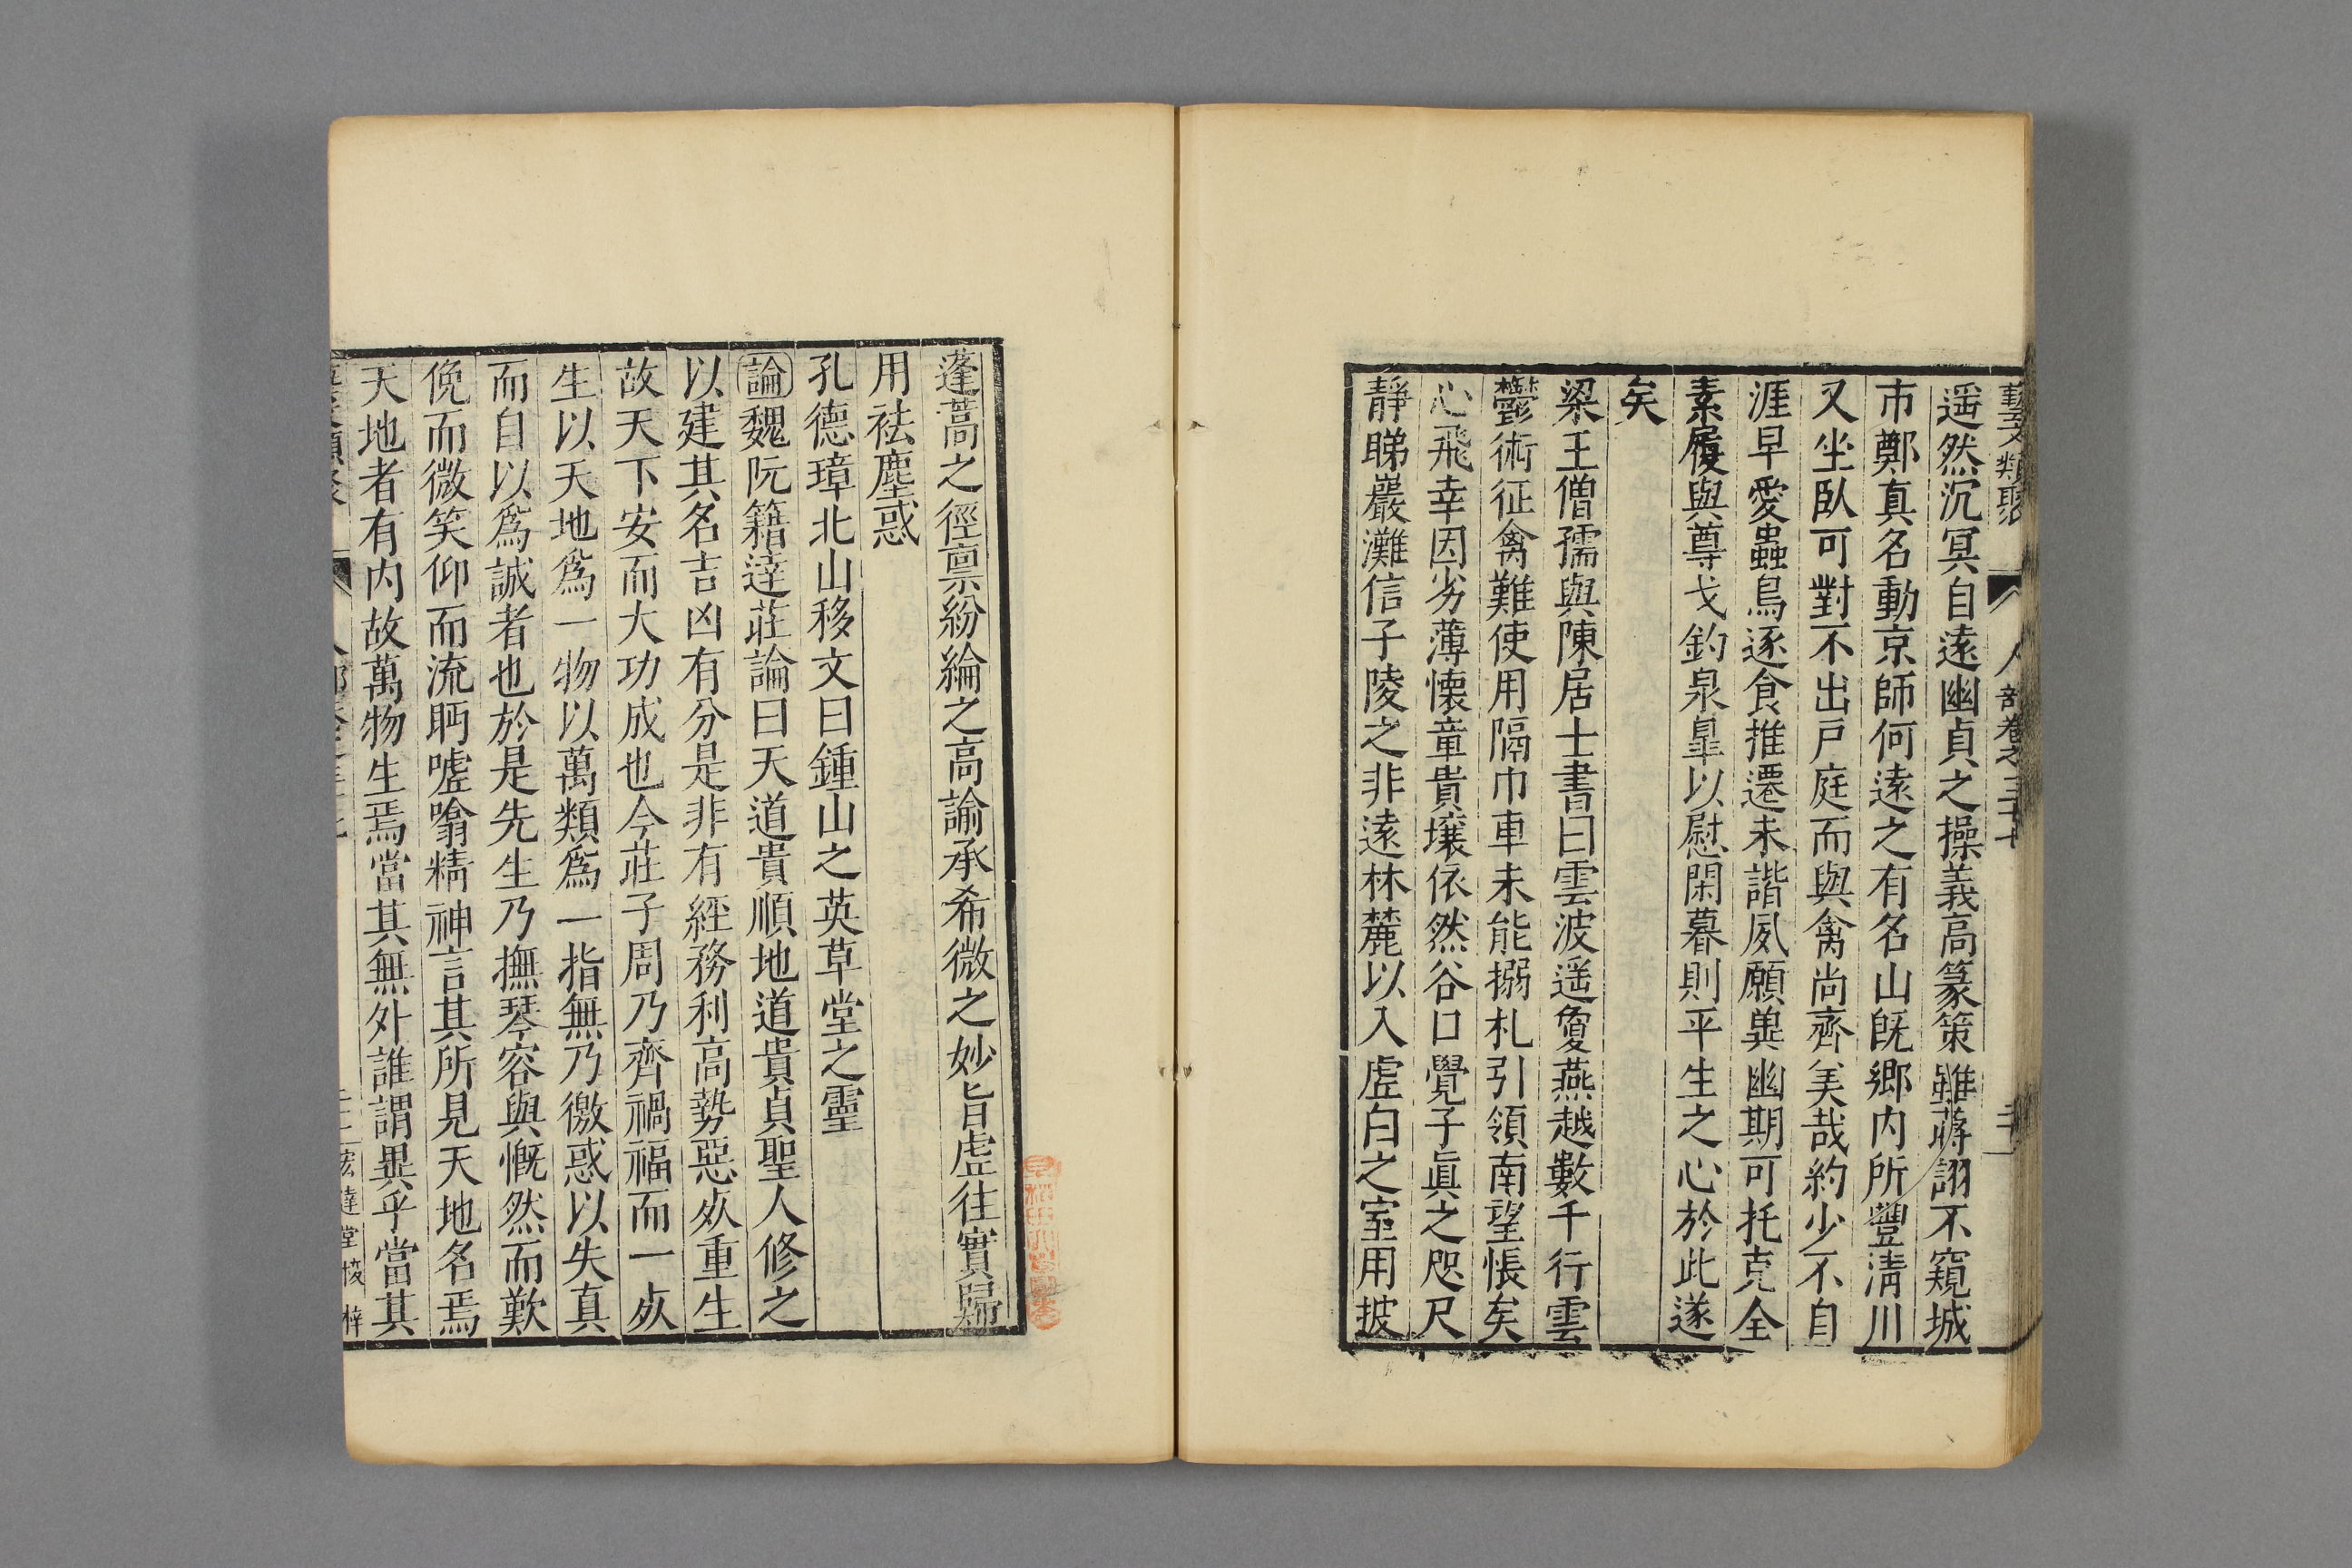 藝文類聚 人部卷之三十七
遥然沉冥自遠幽貞之操義高篆策雖蔣詡不窺城
市鄭真名動京師何遠之有名山既鄉内所豐淸川
又坐臥可對不出戸庭而與禽尚齊美哉約少不自
涯早愛蟲鳥逐食推遷未諧夙願冀幽期可托克全
素履與尊戈釣泉臯以慰閑暮則平生之心於此遂
矣
梁王僧孺與陳居士書曰雲波遥夐燕越數千行雲
鬱術征禽難使用隔巾車未能搦札引領南望悵矣
心飛幸因劣薄懐童貴壤依然谷口覺子眞之咫尺
靜睇巖灘信子陵之非遠林麓以入虛白之室用披
蓬蒿之徑禀紛綸之高諭承希微之妙旨虛往實歸
用袪塵惑
孔德璋北山移文曰鍾山之英草堂之靈
論魏阮籍達莊論曰天道貴順地道貴貞聖人修之
以建其名吉凶有分是非有經務利高勢惡死重生
故天下安而大功成也今莊子周乃齊禍福而一死
生以天地爲一物以萬類爲一指無乃徼惑以失真
而自以爲誠者也於是先生乃撫琴容與慨然而歎
俛而微笑仰而流眄噓噏精神言其所見天地名焉
天地者有内故萬物生焉當其無外誰謂異乎當其